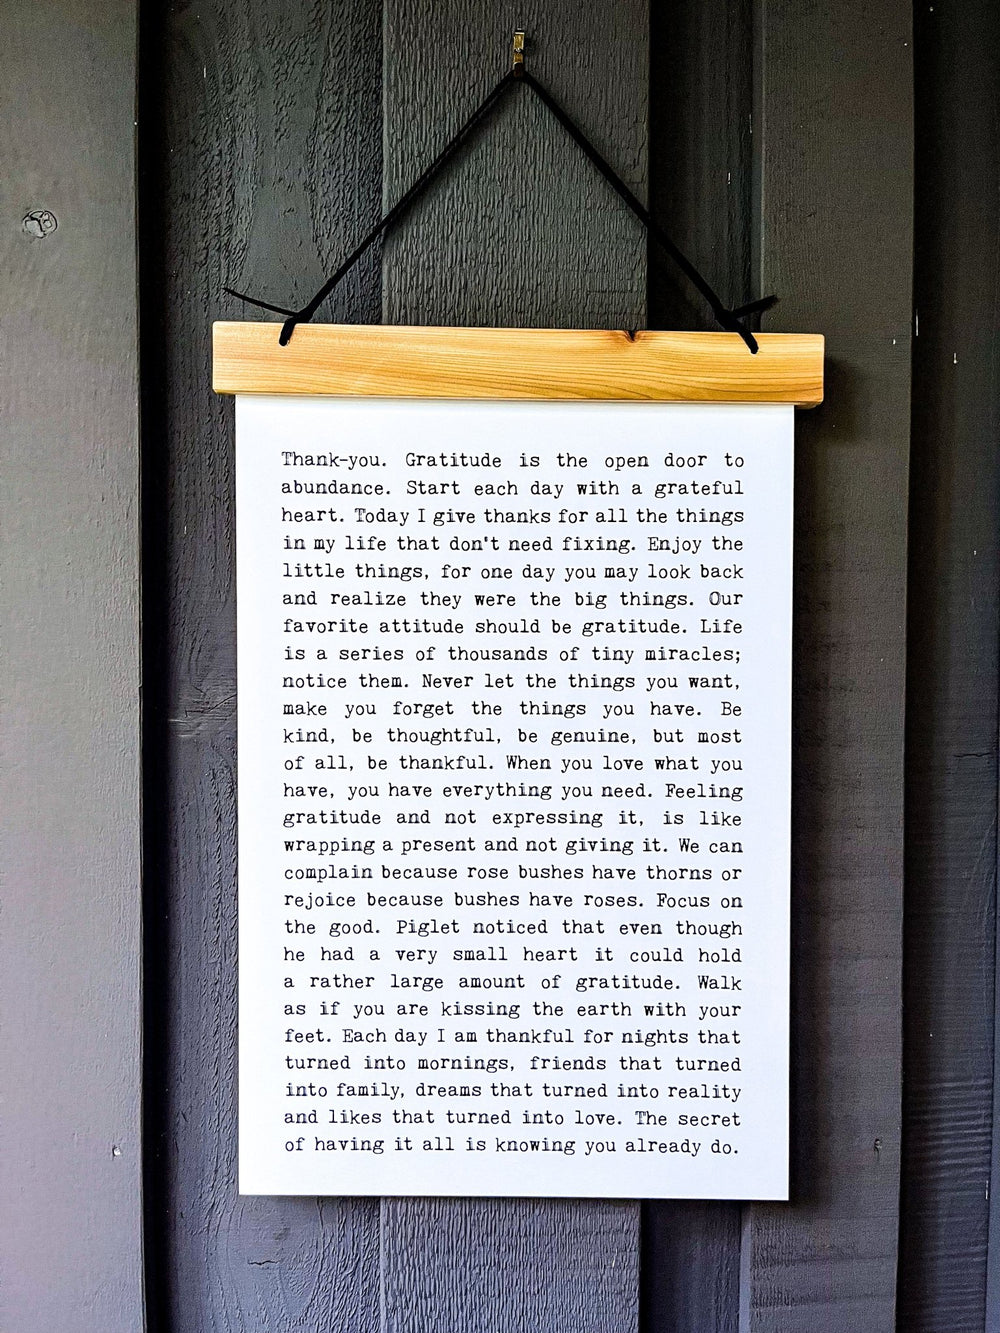 Thank-you. Gratitude is the open door to
abundance. Start each day with a grateful
heart. Today I give thanks for all the things
in my life that don't need fixing. Enjoy the
little things, for one day you may look back
and realize they were the big things. Our
favorite attitude should be gratitude. Life
is a series of thousands of tiny miracles;
notice them. Never let the things you want,
make you forget the things you have. Be
kind, be thoughtful, be genuine, but most
of all, be thankful. When you love what you
have, you have everything you need. Feeling
gratitude and not expressing it, is like
wrapping a present and not giving it. We can
complain because rose bushes have thorns or
rejoice because bushes have roses. Focus on
the good. Piglet noticed that even though
he had a very small heart it could hold
a rather large amount of gratitude. Walk
as if you are kissing the earth with your
feet. Each day I am thankful for nights that
turned into mornings, friends that turned
into family, dreams that turned into reality
and likes that turned into love. The secret
of having it all is knowing you already do.